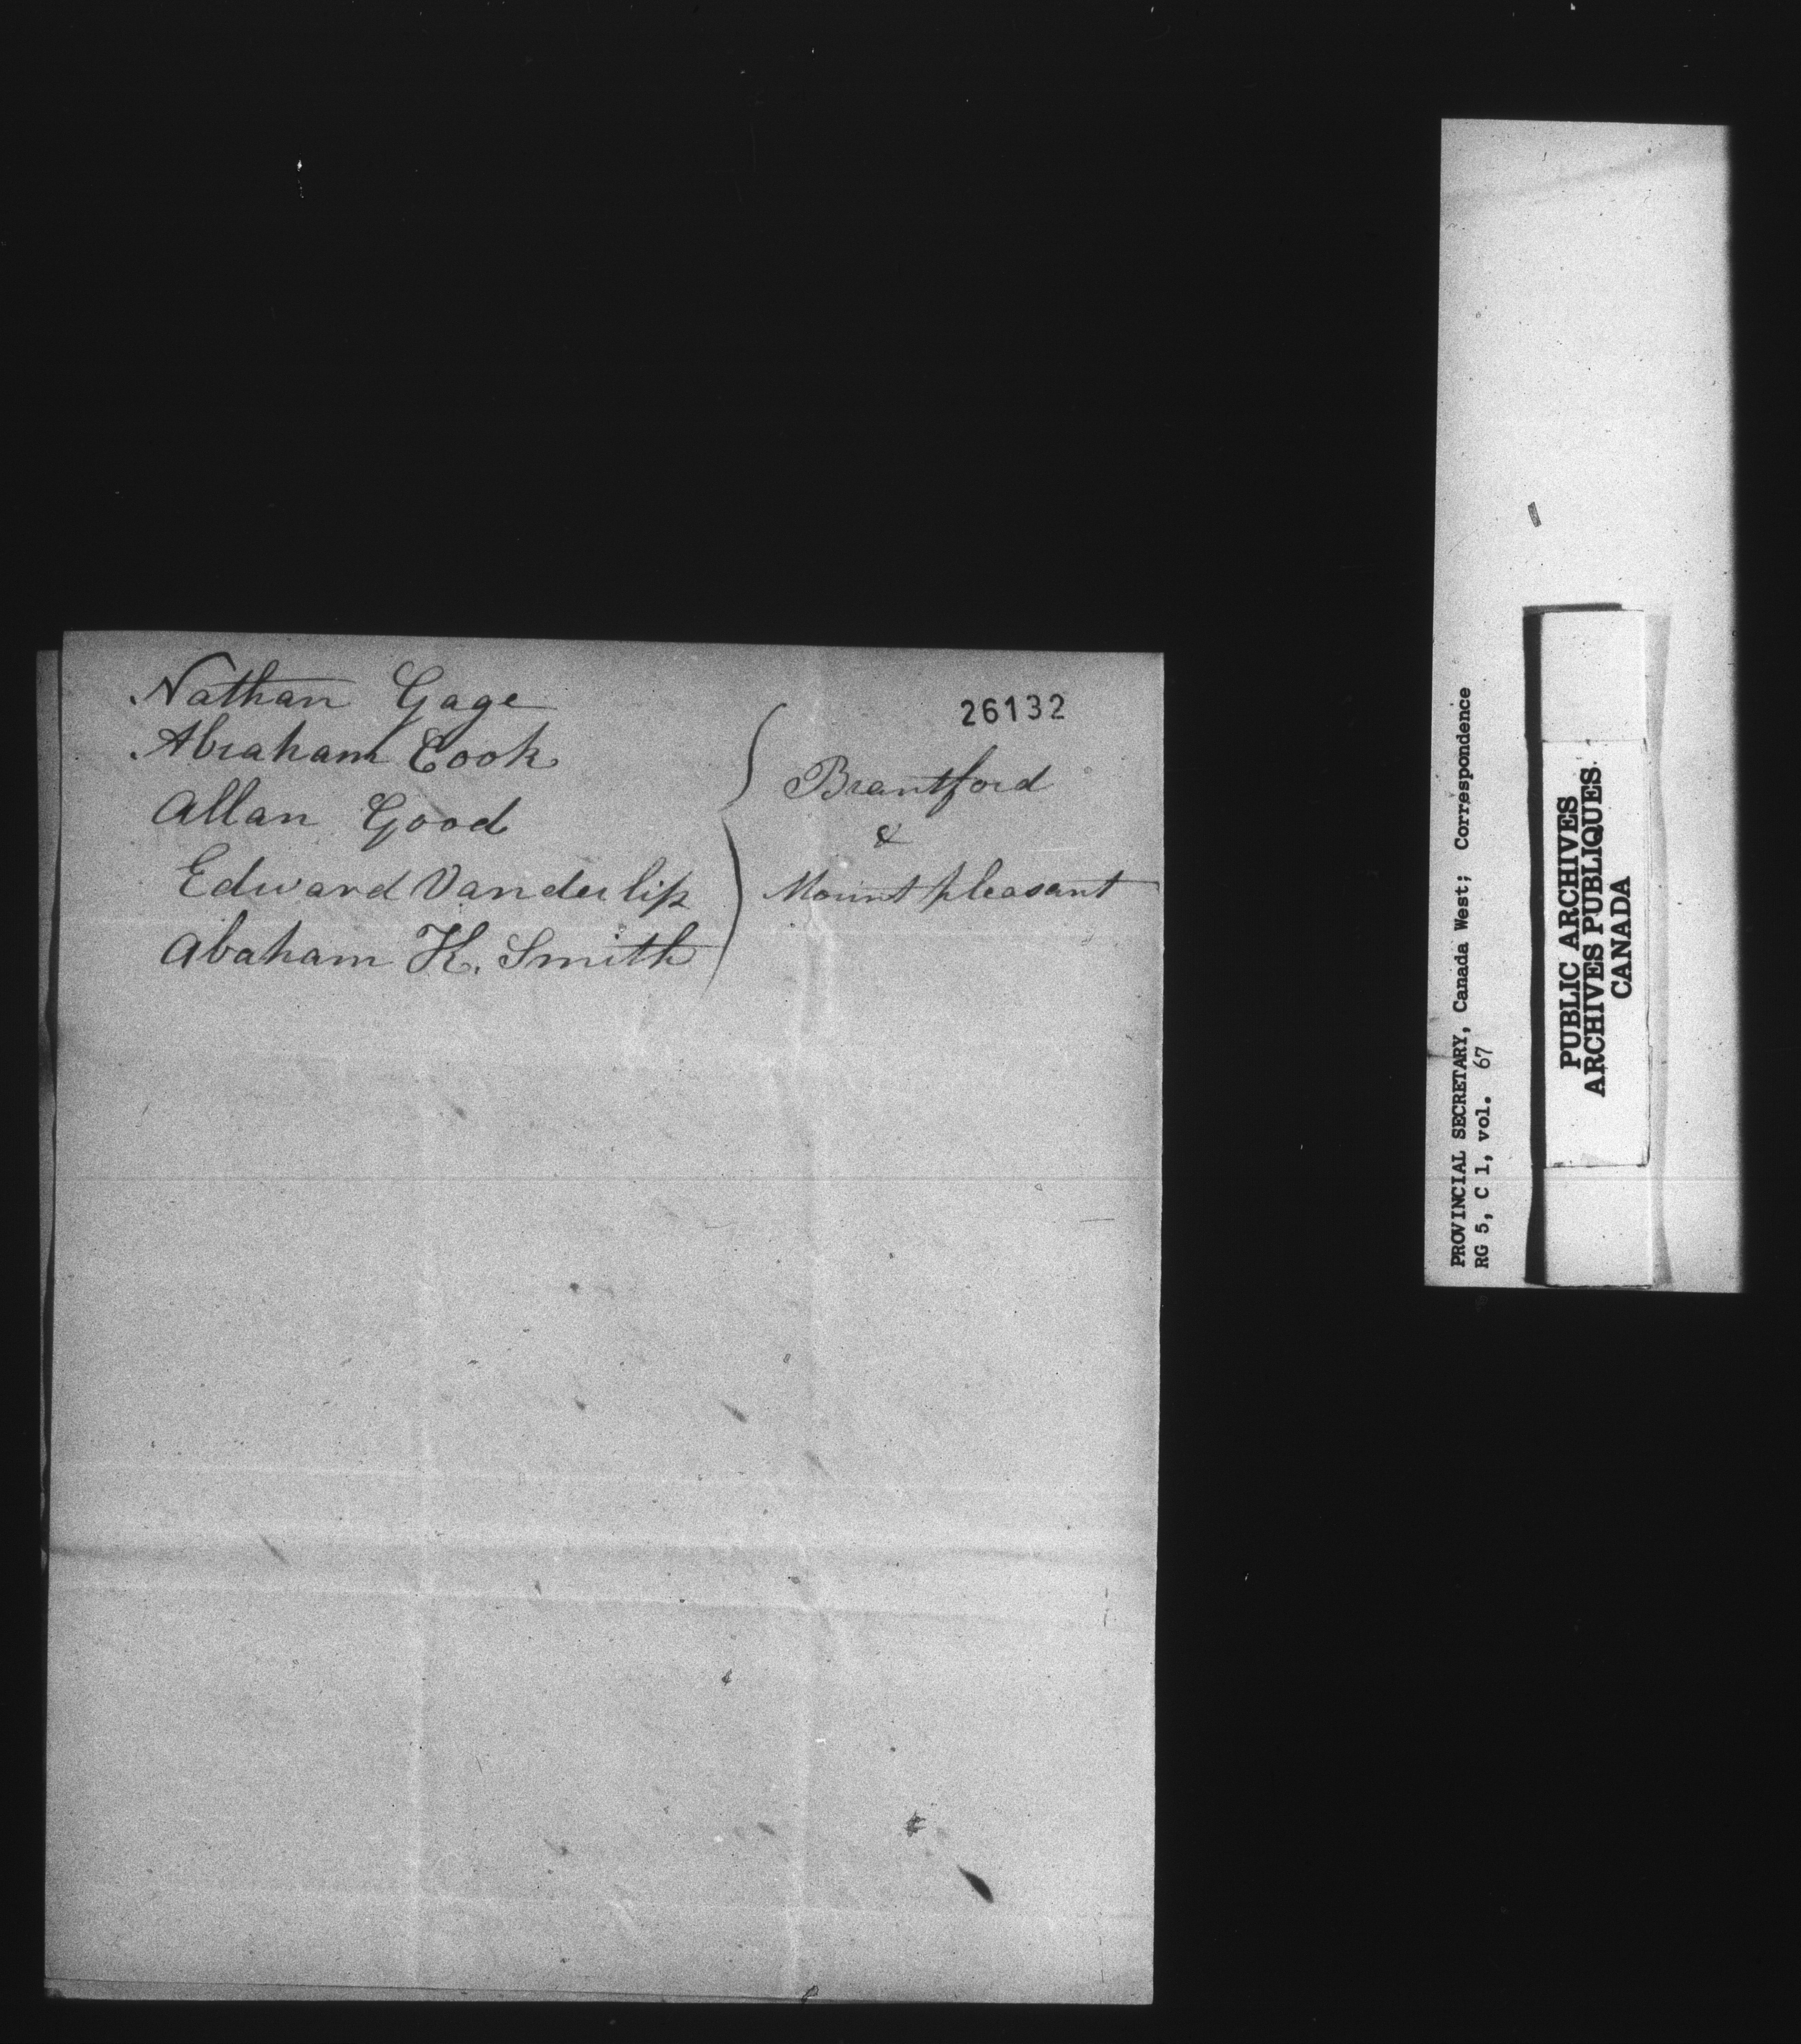 Nathan Gage
Abraham Cook
Allan Good
Edward Vanderlip
Abaham K. Smith
26132
Brantford
&
Mount pleasant
PROVINCIAL SECRETARY, Canada West; Correspondence
RG 5, C 1, vol. 67
PUBLIC ARCHIVES
ARCHIVES PUBLIQUES
CANADA